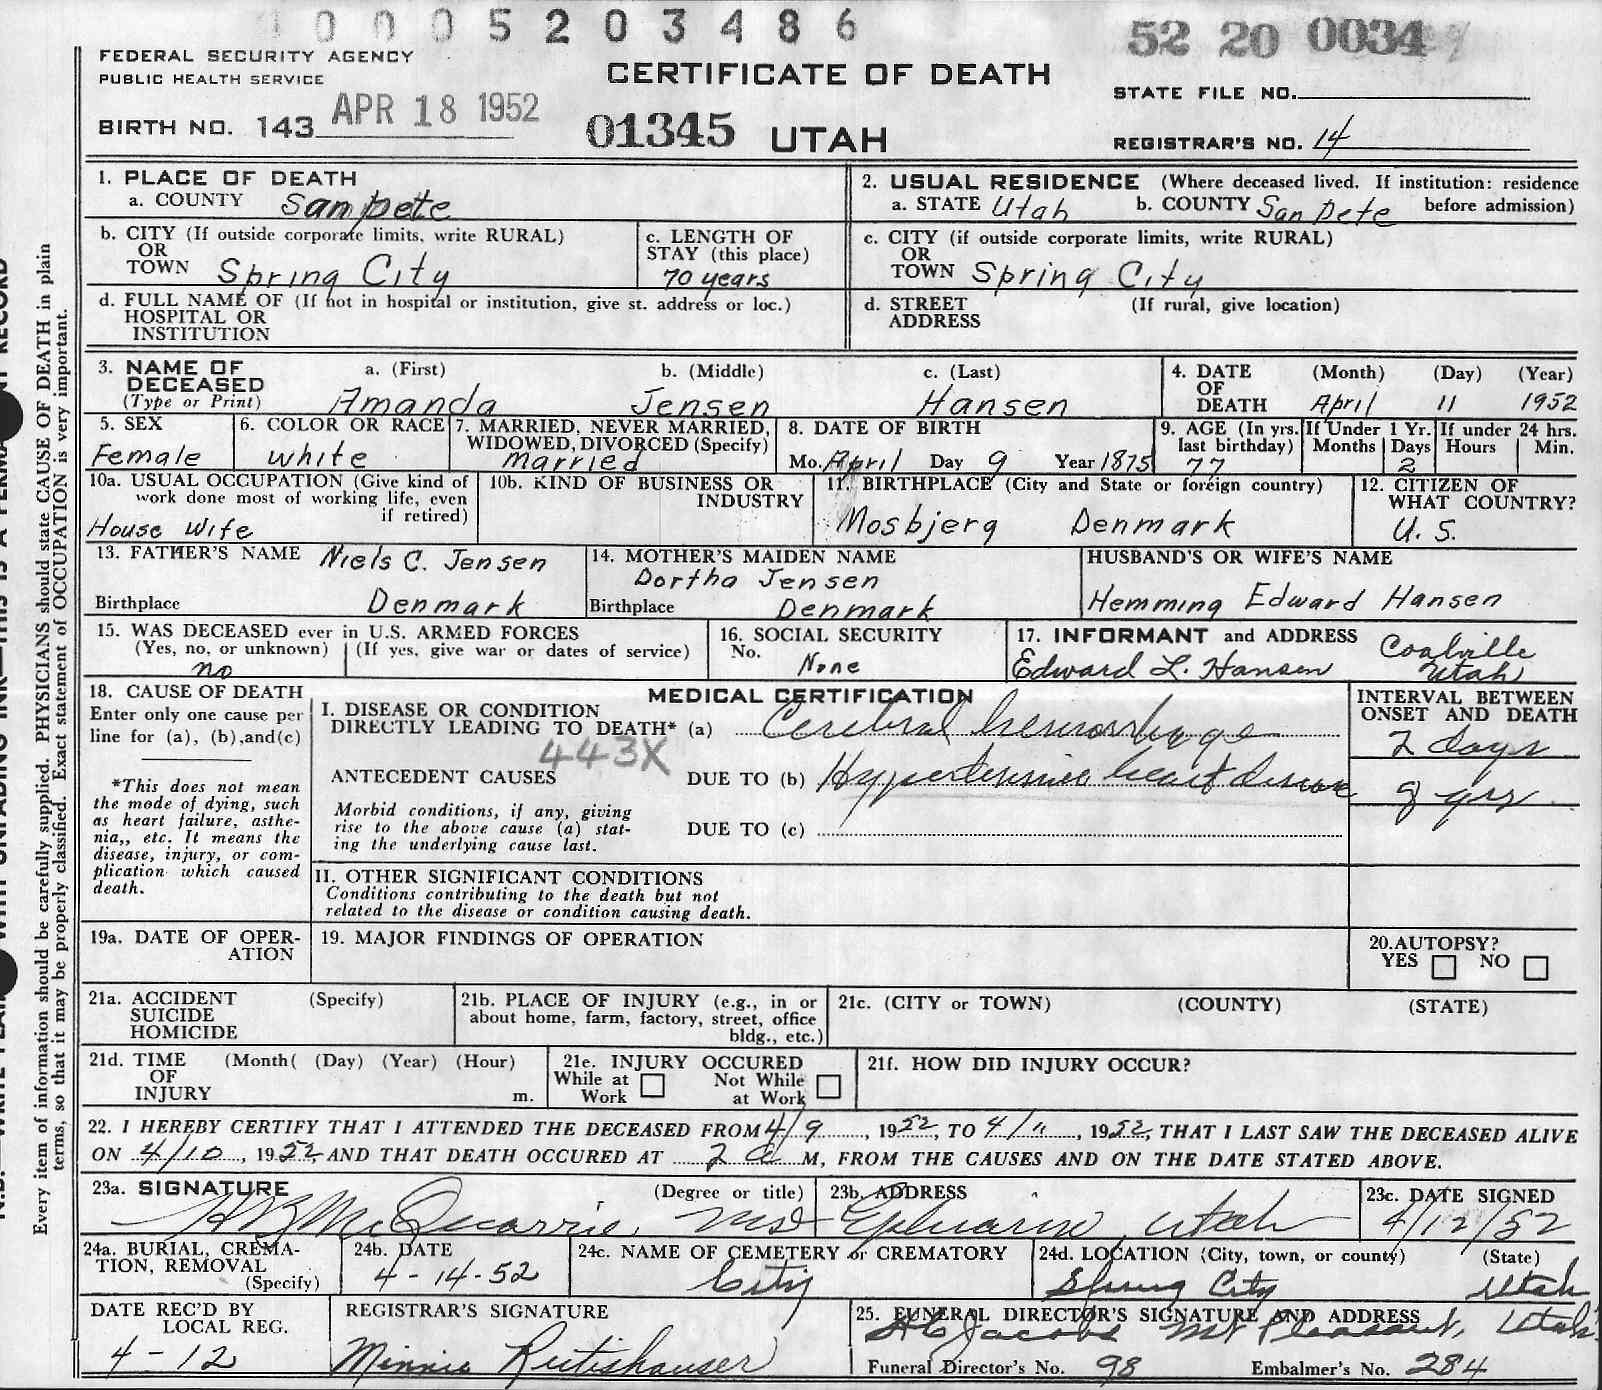 0 0 0 5 2 0 3 4 8 6
52 20 0034
FEDERAL SECURITY AGENCY
PUBLIC HEALTH SERVICE
CERTIFICATE OF DEATH
STATE FILE NO.
BIRTH NO. 143 APR 18 1952
01345 UTAH
REGISTRAR'S NO. 14
1. PLACE OF DEATH
a. COUNTY Sanpete
2. USUAL RESIDENCE (Where deceased lived. If institution: residence before admission)
a. STATE Utah b. COUNTY San pete
b. CITY (If outside corporate limits, write RURAL)
OR
TOWN Spring City
c. LENGTH OF
STAY (this place)
70 years
c. CITY (if outside corporate limits, write RURAL)
OR
TOWN Spring City
d. FULL NAME OF (If not in hospital or institution, give st. address or loc.)
HOSPITAL OR
INSTITUTION
d. STREET (If rural, give location)
ADDRESS
3. NAME OF
DECEASED
(Type or Print)
a. (First) b. (Middle) c. (Last)
Amanda Jensen Hansen
4. DATE (Month) (Day) (Year)
OF
DEATH April 11 1952
5. SEX
Female
6. COLOR OR RACE
white
7. MARRIED, NEVER MARRIED,
WIDOWED, DIVORCED (Specify)
married
8. DATE OF BIRTH
Mo. April Day 9 Year 1875
9. AGE (In yrs.
last birthday)
77
If Under 1 Yr.
Months Days
2
If under 24 hrs.
Hours Min.
10a. USUAL OCCUPATION (Give kind of
work done most of working life, even
if retired)
House Wife
10b. KIND OF BUSINESS OR
INDUSTRY
11. BIRTHPLACE (City and State or foreign country)
Mosbjerg Denmark
12. CITIZEN OF
WHAT COUNTRY?
U. S.
13. FATHER'S NAME Niels C. Jensen
Birthplace Denmark
14. MOTHER'S MAIDEN NAME
Dortha Jensen
Birthplace Denmark
HUSBAND'S OR WIFE'S NAME
Hemming Edward Hansen
15. WAS DECEASED ever in U.S. ARMED FORCES
(Yes, no, or unknown) (If yes, give war or dates of service)
no
16. SOCIAL SECURITY
No.
None
17. INFORMANT and ADDRESS
Edward L. Hansen Coalville
Utah
18. CAUSE OF DEATH
Enter only one cause per
line for (a), (b), and (c)
*This does not mean
the mode of dying, such
as heart failure, asthe-
nia,, etc. It means the
disease, injury, or com-
plication which caused
death.
MEDICAL CERTIFICATION
I. DISEASE OR CONDITION
DIRECTLY LEADING TO DEATH* (a) Cerebral hemorrhage
443X
ANTECEDENT CAUSES DUE TO (b) Hypertensive heart disease
Morbid conditions, if any, giving
rise to the above cause (a) stat-
ing the underlying cause last.
DUE TO (c)
INTERVAL BETWEEN
ONSET AND DEATH
2 days
yrs
II. OTHER SIGNIFICANT CONDITIONS
Conditions contributing to the death but not
related to the disease or condition causing death.
19a. DATE OF OPER-
ATION
19. MAJOR FINDINGS OF OPERATION
20. AUTOPSY?
YES NO
21a. ACCIDENT (Specify)
SUICIDE
HOMICIDE
21b. PLACE OF INJURY (e.g., in or
about home, farm, factory, street, office
bldg., etc.)
21c. (CITY or TOWN) (COUNTY) (STATE)
21d. TIME (Month( (Day) (Year) (Hour)
OF
INJURY m.
21e. INJURY OCCURED
While at Work Not While at Work
21f. HOW DID INJURY OCCUR?
22. I HEREBY CERTIFY THAT I ATTENDED THE DECEASED FROM 4/9, 1952, TO 4/11, 1952, THAT I LAST SAW THE DECEASED ALIVE
ON 4/10, 1952, AND THAT DEATH OCCURED AT 2 a M, FROM THE CAUSES AND ON THE DATE STATED ABOVE.
23a. SIGNATURE (Degree or title)
McQuarrie, MD
23b. ADDRESS
Ephraim Utah
23c. DATE SIGNED
4/12/52
24a. BURIAL, CREMA-
TION, REMOVAL
(Specify)
24b. DATE
4-14-52
24c. NAME OF CEMETERY or CREMATORY
City
24d. LOCATION (City, town, or county) (State)
Spring City Utah
DATE REC'D BY
LOCAL REG.
4-12
REGISTRAR'S SIGNATURE
Minnie Rutishauser
25. FUNERAL DIRECTOR'S SIGNATURE AND ADDRESS
Jacobs Mt Pleasant, Utah
Funeral Director's No. 98 Embalmer's No. 284
Every item of information should be carefully supplied. PHYSICIANS should state CAUSE OF DEATH in plain
terms, so that it may be properly classified. Exact statement of OCCUPATION is very important.